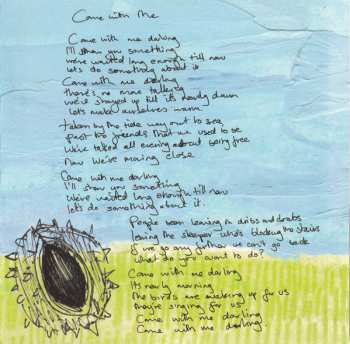 Come with Me
Come with me darling
I'll show you something
we've waited long enough till now
lets do something about it
Come with me darling
there's no more talking
we've stayed up till its nearly dawn
lets make ourselves warm
taken by the tide way out to sea
past the friends that we used to be
we've talked all evening about being free
Now we're moving close
Come with me darling
I'll show you something
We've waited long enough till now
lets do something about it.
People been leaving in dribs and drabs
leaving the sleeper who's blocking the stairs
if we go any further we can't go back
what do you want to do?
Come with me darling
Its nearly morning
The birds are waking up for us
they're singing for us
Come with me darling
Come with me darling.